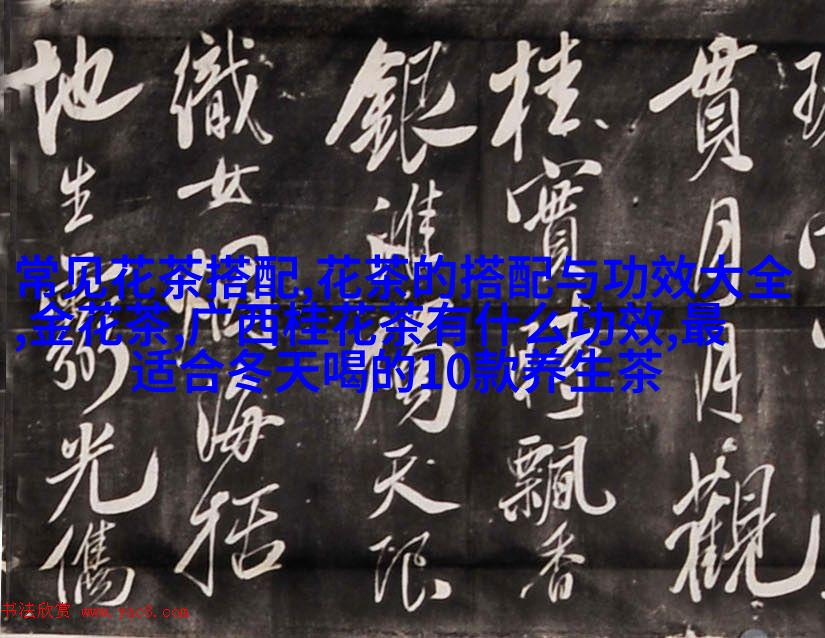 常见花茶搭配,花茶的搭配与功效大全
,金花茶,广西桂花茶有什么功效,最
适合冬天喝的10款养生茶
貫月月觀
桂實時飄香
銀淮天限
織女海括
地生光儁
书法欣赏 www.yac8.com